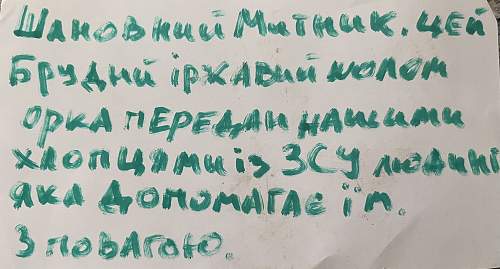 Шановний Митник. цей
Брудний іржавий шолом
орка передан нашими
хлопцями із ЗСУ людині
яка допомагає їм.
З повагою.